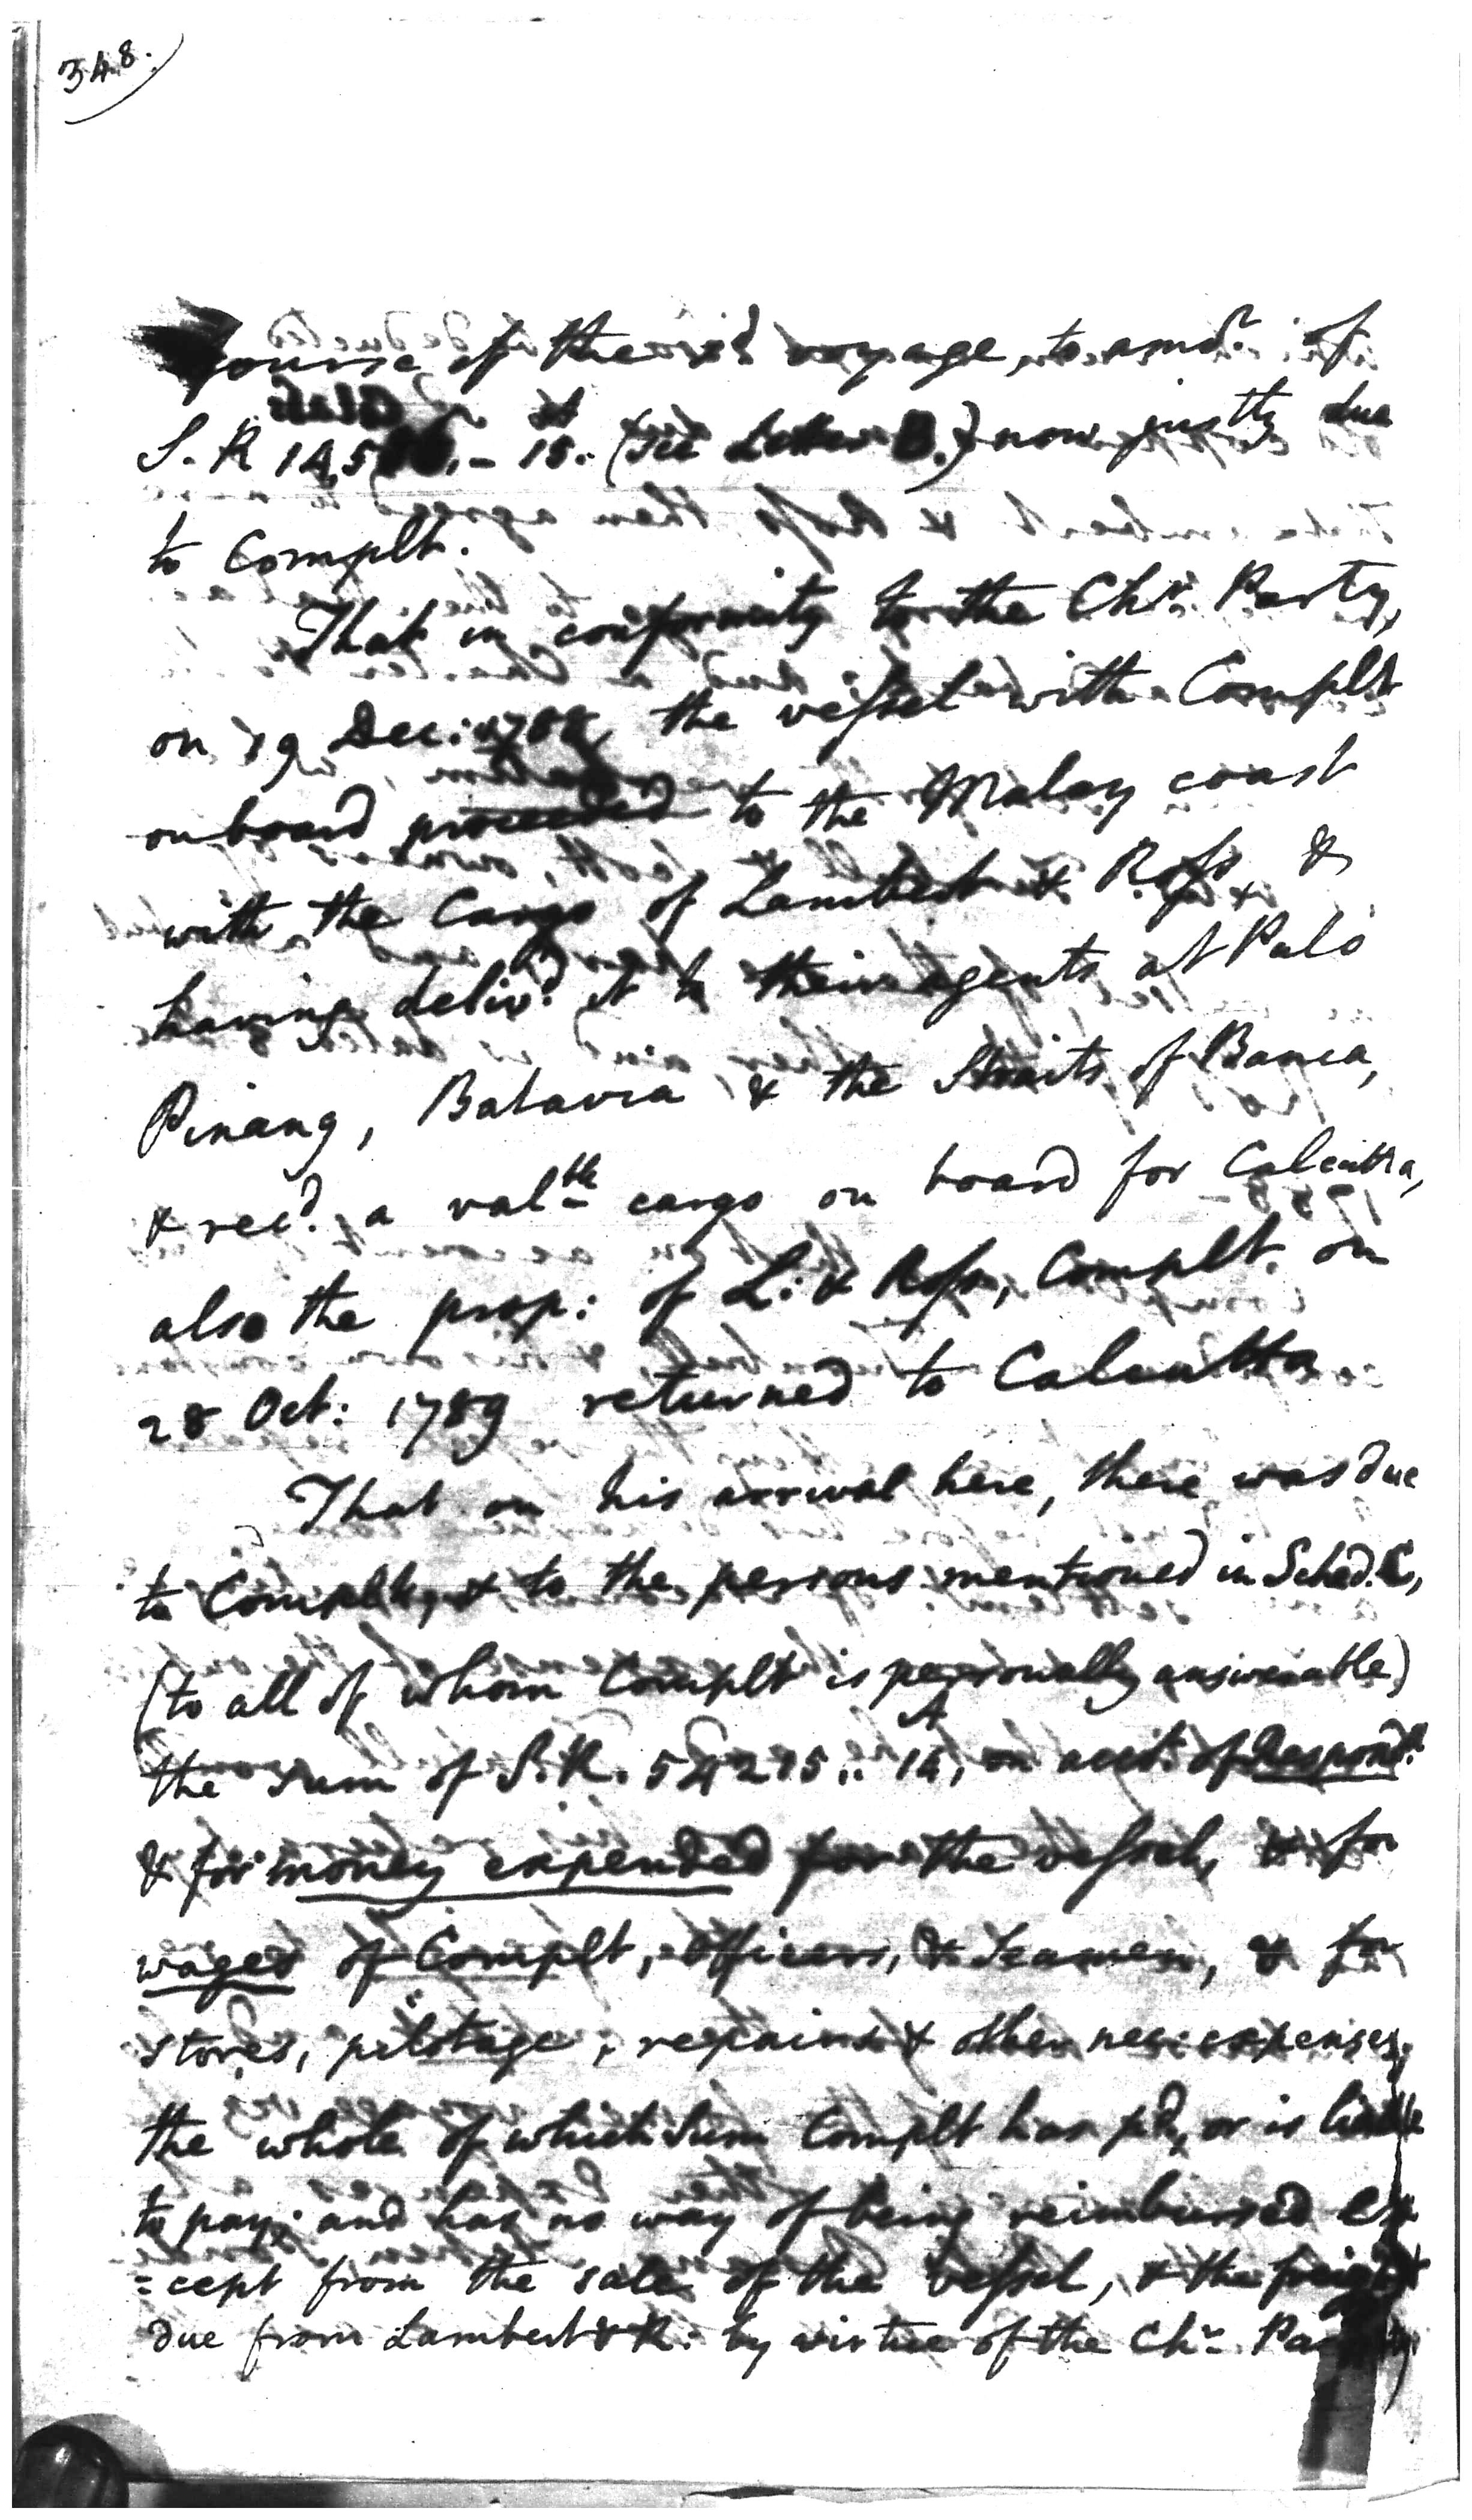 348.
course of the sd voyage, to amot. of
S. R 14,5 - 15. (see Letter B.) now justly due
to Complt.
That in conformity to the Chr. Party,
on 19 Dec: 1788, the vessel with Complt
on board proceeded to the Malay coast
with the Cargo of Lambert & Ross, &
having delivd. it to their agents at Pulo
Pinang, Batavia & the Straits of Banca,
& recd. a valble cargo on board for Calcutta,
also the prop: of L: & Ross, Complt. on
28 Oct: 1789 returned to Calcutta
That on his arrival here, there was due
to Complt, & to the persons mentioned in Sched. C,
(to all of whom Complt is personally answerable)
the sum of S. R. 54215.. 14, on acct. of Respond.
& for money expended for the vessel, & for
wages of Complt, officers, & Seamen, & for
stores, pilotage, repairs & other nec: expenses,
the whole of which sum Complt has pd, or is liable
to pay; and has no way of being reimbursed ex
=cept from the sale of the vessel, & the freight
due from Lambert & R: by virtue of the Chr. Party.